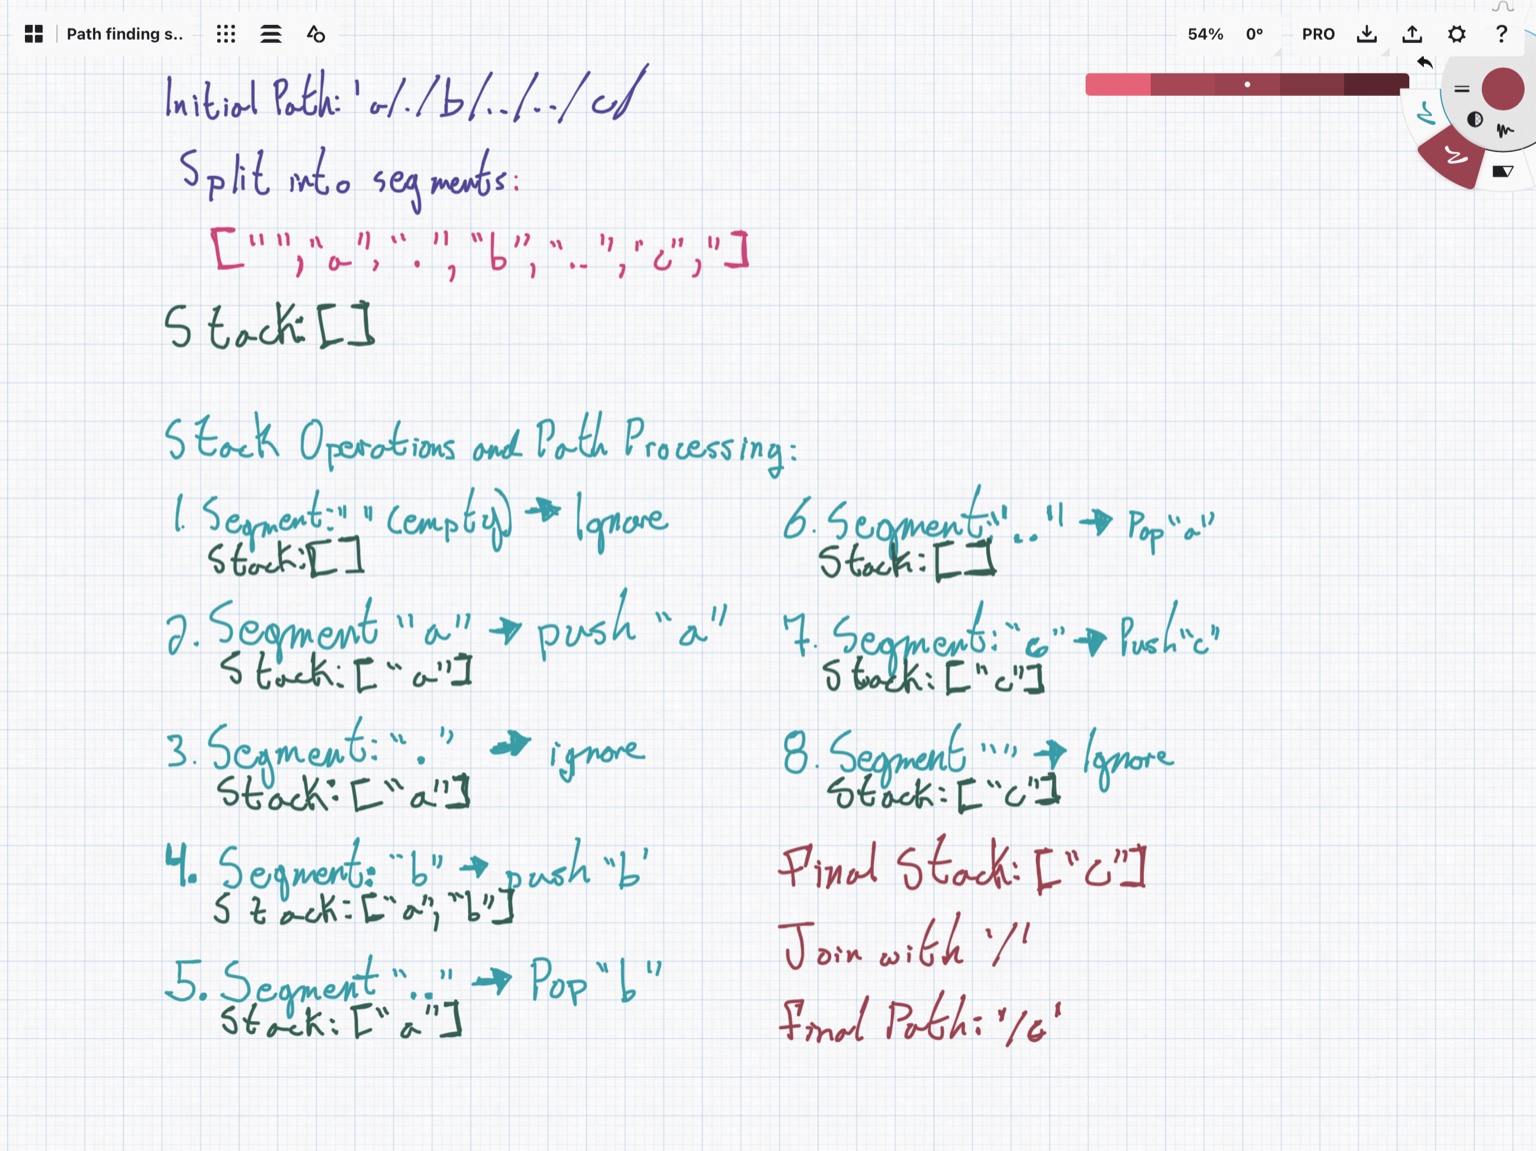 Path finding s..
54% 0° PRO ?
Initial Path: 'a/./b/../../c/
Split into segments:
["","a",".","b","..","c","]
Stack:[]
Stack Operations and Path Processing:
1. Segment:" " (empty) → Ignore
Stack:[]
2. Segment "a" → push "a"
Stack: ["a"]
3. Segment: "." → ignore
Stack: ["a"]
4. Segment: "b" → push "b'
Stack: ["a","b"]
5. Segment ".." → Pop "b"
Stack: ["a"]
6. Segment:".." → Pop "a"
Stack: []
7. Segment: "c" → Push "c"
Stack: ["c"]
8. Segment "" → Ignore
Stack: ["c"]
Final Stack: ["c"]
Join with '/'
Final Path: '/c'